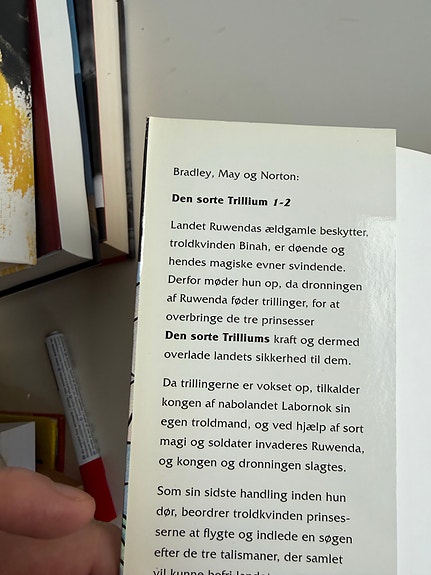 Bradley, May og Norton:
Den sorte Trillium 1-2
Landet Ruwendas ældgamle beskytter,
troldkvinden Binah, er døende og
hendes magiske evner svindende.
Derfor møder hun op, da dronningen
af Ruwenda føder trillinger, for at
overbringe de tre prinsesser
Den sorte Trilliums kraft og dermed
overlade landets sikkerhed til dem.
Da trillingerne er vokset op, tilkalder
kongen af nabolandet Labornok sin
egen troldmand, og ved hjælp af sort
magi og soldater invaderes Ruwenda,
og kongen og dronningen slagtes.
Som sin sidste handling inden hun
dør, beordrer troldkvinden prinses-
serne at flygte og indlede en søgen
efter de tre talismaner, der samlet
vil kunne befri